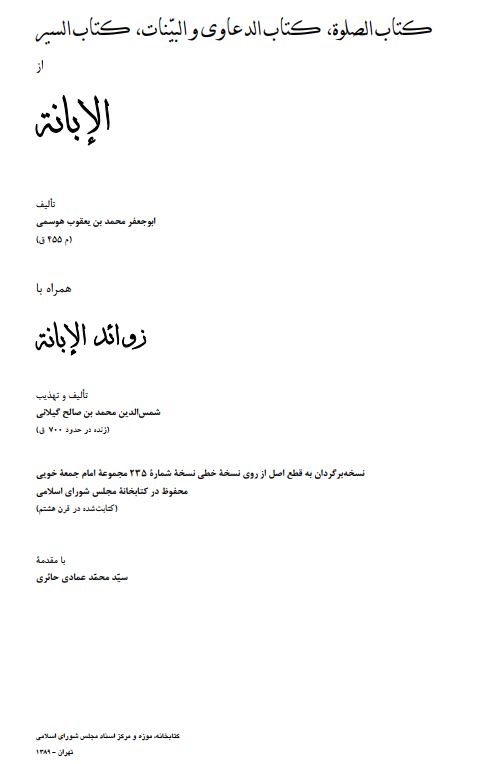 كتاب الصلوة، كتاب الدعاوى و البيّنات، كتاب السير
از
الإبانة
تألیف
ابوجعفر محمد بن یعقوب هوسمی
(م ۴۵۵ ق)
همراه با
زوائد الإبانة
تألیف و تهذیب
شمس‌الدین محمد بن صالح گیلانی
(زنده در حدود ۷۰۰ ق)
نسخه‌برگردان به قطع اصل از روی نسخهٔ خطی نسخهٔ شمارهٔ ۲۳۵ مجموعهٔ امام جمعهٔ خویی
محفوظ در کتابخانهٔ مجلس شورای اسلامی
(کتابت‌شده در قرن هشتم)
با مقدمهٔ
سیّد محمّد عمادی حائری
کتابخانه، موزه و مرکز اسناد مجلس شورای اسلامی
تهران - ۱۳۸۹